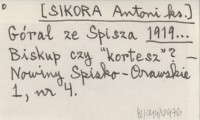 [SIKORA Antoni ks.]
Góral ze Spisza 1919...
Biskup czy "kortesz"? –
Nowiny Spisko-Orawskie
1, nr 4.